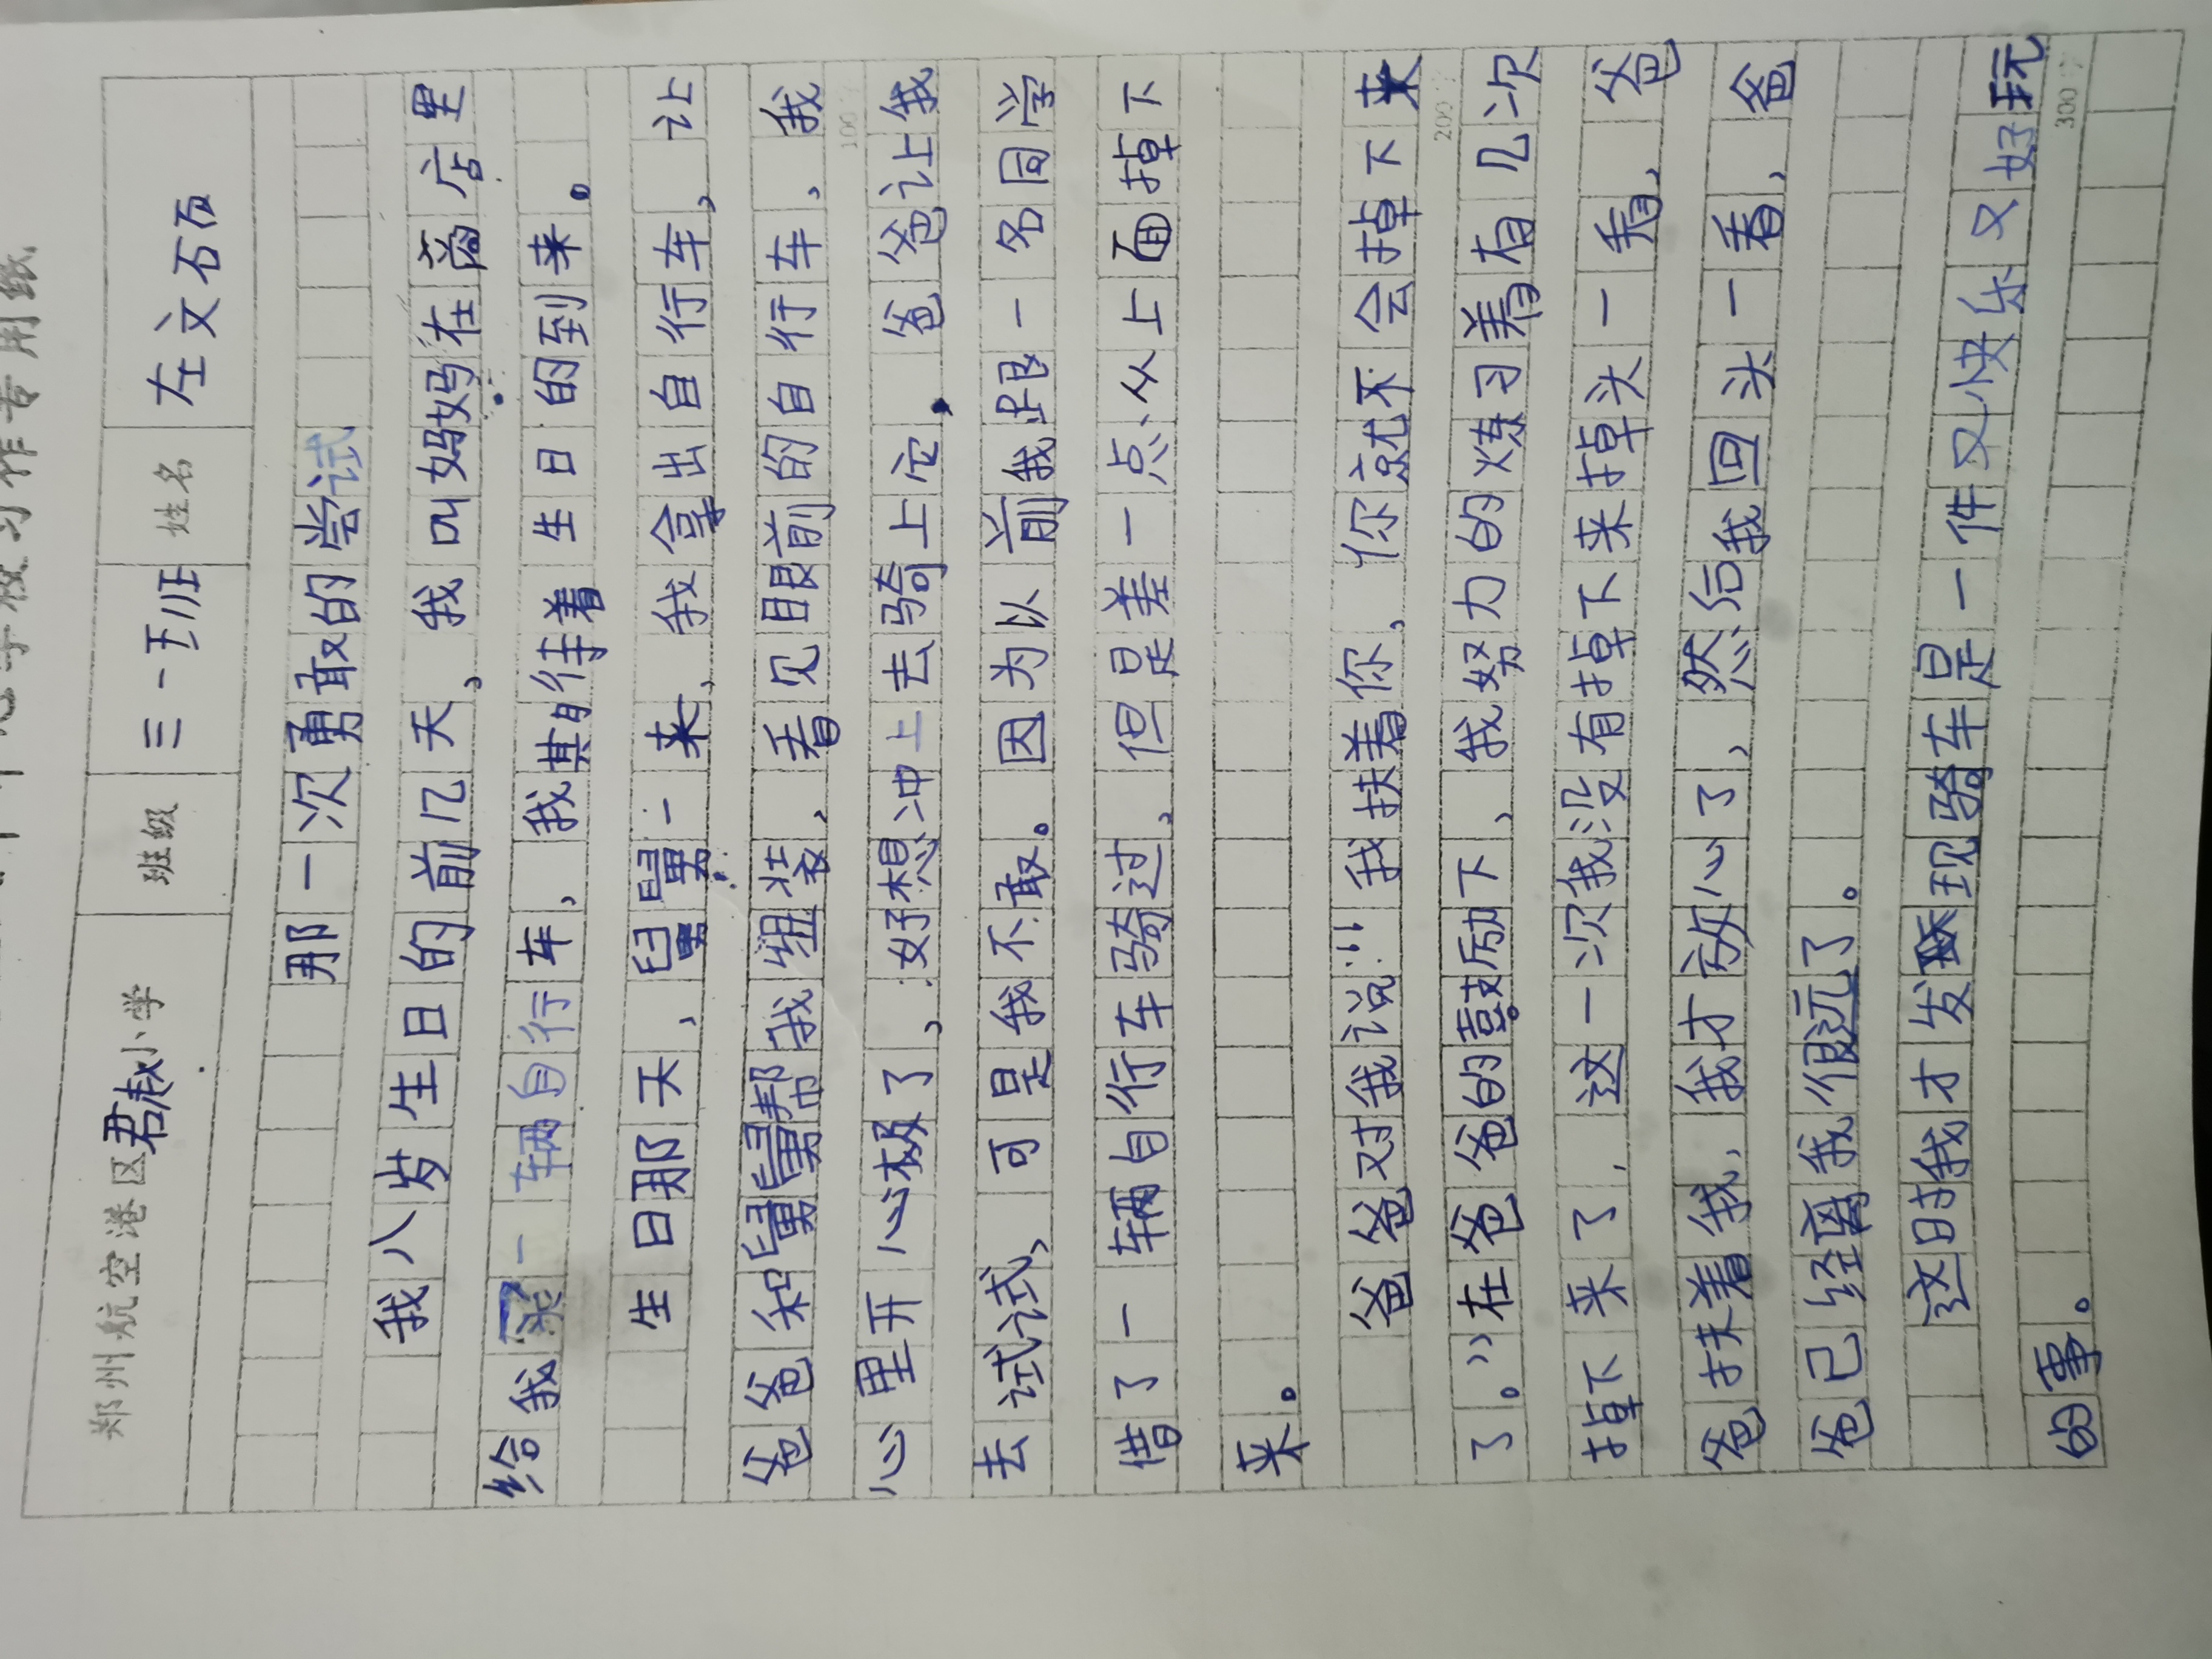 习作专用纸
郑州航空港区君赵小学 班级 三·一五班 姓名 左文石
那一次勇敢的尝试
我八岁生日的前几天，我叫妈妈在商店里
给我买一辆自行车，我其待着生日的到来。
生日那天，舅舅一来，我拿出自行车，让
爸爸和舅舅帮我组装，看见眼前的自行车，我
心里开心极了，好想冲上去骑上它。爸爸让我
去试试，可是我不敢。因为以前我跟一名同学
借了一辆自行车骑过，但是差一点从上面掉下
来。
爸爸对我说：“我扶着你，你就不会掉下来
了。”在爸爸的鼓励下，我努力的练习着有几次
掉下来了，这一次我没有掉下来掉头一看，爸
爸扶着我，我才放心了，然后我回头一看，爸
爸已经离我很远了。
这时我才发现骑车是一件又快乐又好玩
的事。
100字
200字
300字